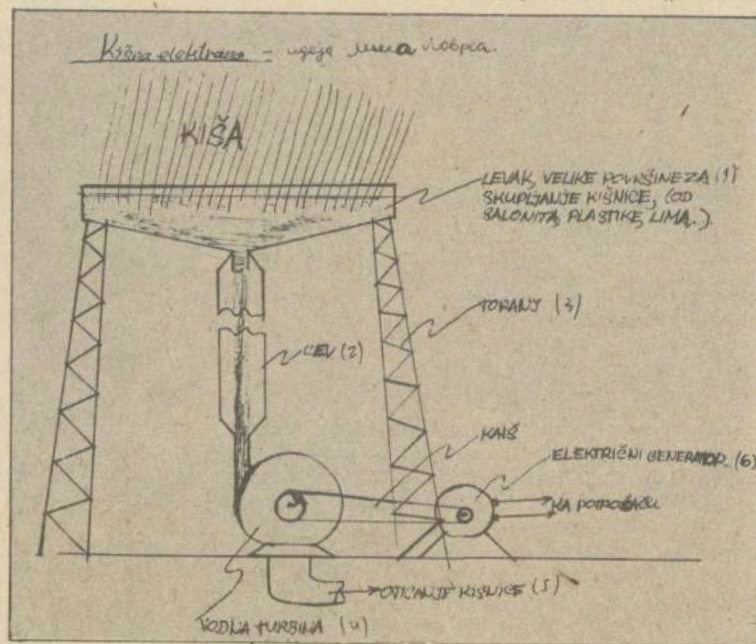 Kišna elektrana - идеја
KIŠA
LEVAK, VELIKE POVRŠINE ZA (1)
SKUPLJANJE KIŠNICE, (OD
SALONITA, PLASTIKE, LIMA..).
TORANJ (3)
CEV (2)
KAIŠ
ELEKTRIČNI GENERATOR. (6)
KA POTROŠAČU
OTICANJE KIŠNICE (5)
VODNA TURBINA (4)